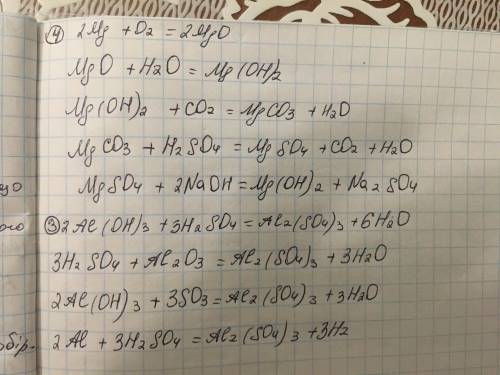 4) 2Mg + O2 = 2MgO
MgO + H2O = Mg(OH)2
Mg(OH)2 + CO2 = MgCO3 + H2O
MgCO3 + H2SO4 = MgSO4 + CO2 + H2O
MgSO4 + 2NaOH = Mg(OH)2 + Na2SO4
3) 2Al(OH)3 + 3H2SO4 = Al2(SO4)3 + 6H2O
3H2SO4 + Al2O3 = Al2(SO4)3 + 3H2O
2Al(OH)3 + 3SO3 = Al2(SO4)3 + 3H2O
2Al + 3H2SO4 = Al2(SO4)3 + 3H2